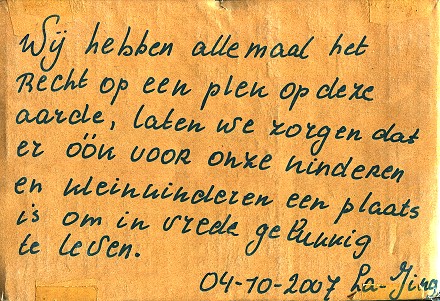 Wij hebben allemaal het
Recht op een plek op deze
aarde, laten we zorgen dat
er óón voor onze kinderen
en kleinkinderen een plaats
is om in vrede gelukkig
te leven.
04-10-2007